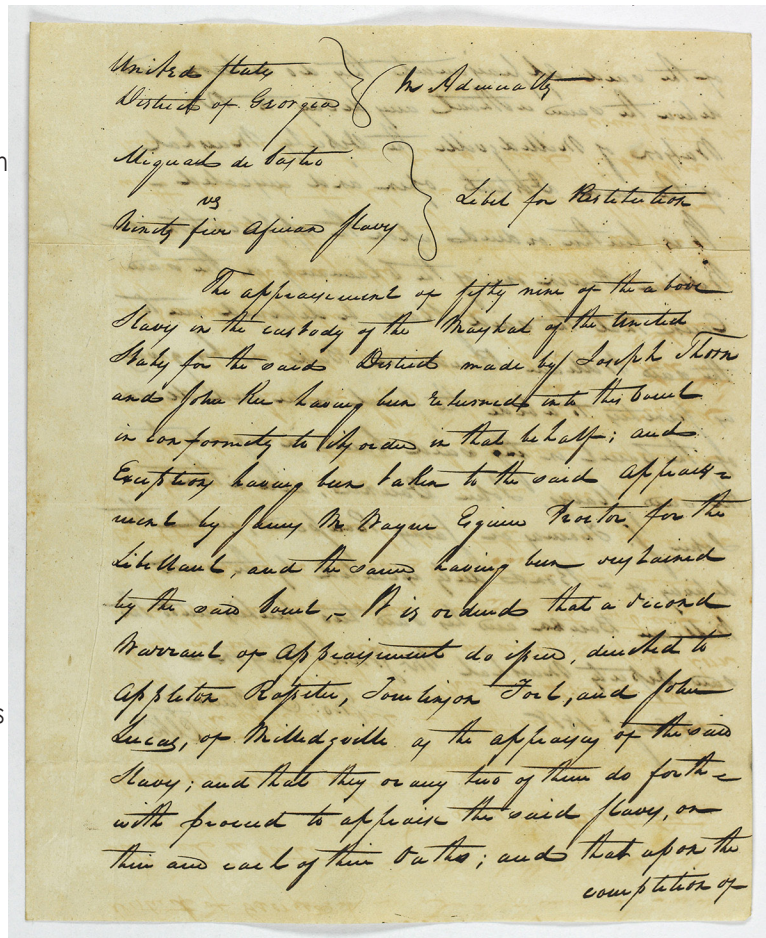 United States
District of Georgia } In Admiralty
Miguel de Castro
vs } Libel for Restitution
Ninety five African Slaves
The appraisement of fifty nine of the above
Slaves in the custody of the Marshal of the United
States for the said District made by Joseph Thorn
and John having been returned into this Court
in conformity to its order in that behalf; and
Exceptions having been taken to the said appraise=
ment by James M. Wayne Esquire Proctor for the
Libellant, and the same having been sustained
by the said Court, – It is ordered that a second
Warrant of Appraisement do issue, directed to
Appleton Rossiter, Tomlinson Fort, and John
Lucas, of Milledgville as the appraisers of the said
Slaves; and that they or any two of them do forth=
with proceed to appraise the said slaves, on
their and each of their Oaths; and that upon the
completion of
n
s